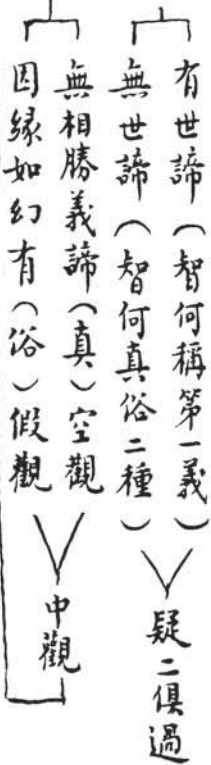 有世諦（智何稱第一義）
無世諦（智何真俗二種）
疑二俱過
無相勝義諦（真）空觀
因緣如幻有（俗）假觀
中觀